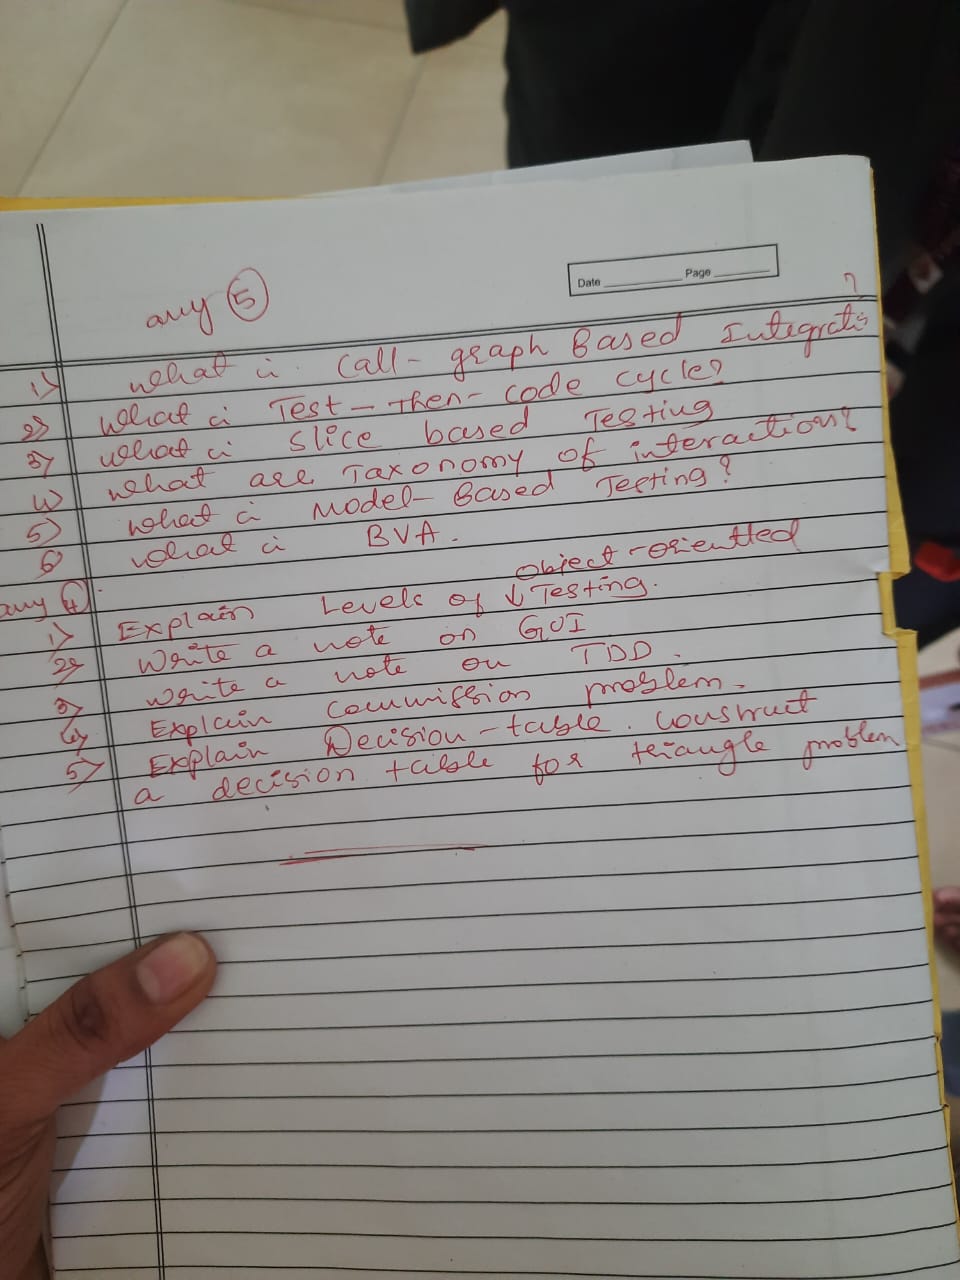 Date ____ Page ____
any 5
1) What is Call-graph Based Integratio ?
2) What is Test-then-code cycle?
3) What is slice based Testing
4) What are Taxonomy of interaction?
5) What is Model-Based Testing?
6) What is BVA.
any 4.
object-orientted
1) Explain Levels of ↓ Testing.
2) Write a note on GUI
3) Write a note on TDD.
4) Explain commission problem.
5) Explain Decision-table. Construct
a decision table for triangle problem